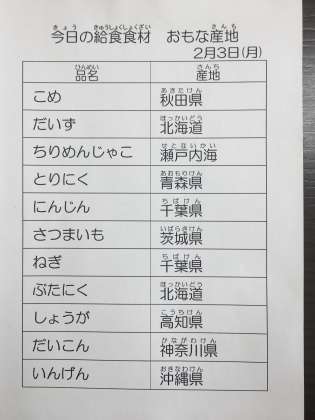 今日の給食食材 おもな産地
2月3日(月)
品名 産地
こめ 秋田県
だいず 北海道
ちりめんじゃこ 瀬戸内海
とりにく 青森県
にんじん 千葉県
さつまいも 茨城県
ねぎ 千葉県
ぶたにく 北海道
しょうが 高知県
だいこん 神奈川県
いんげん 沖縄県